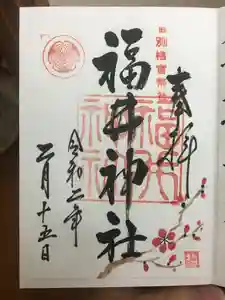 奉拝
旧別格官幣社
福井神社
福井神社
令和二年
二月十五日